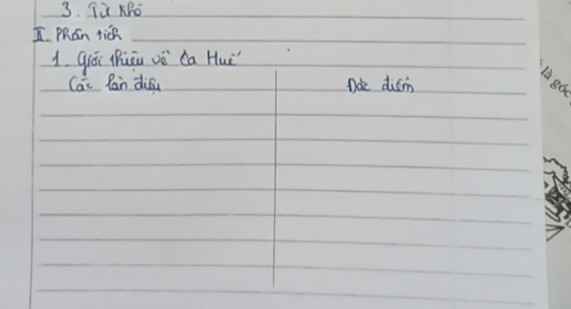 3. Từ khó
II. Phân tích
1. Giới thiệu về Ca Huế
Các làn điệu Đặc điểm
là góc